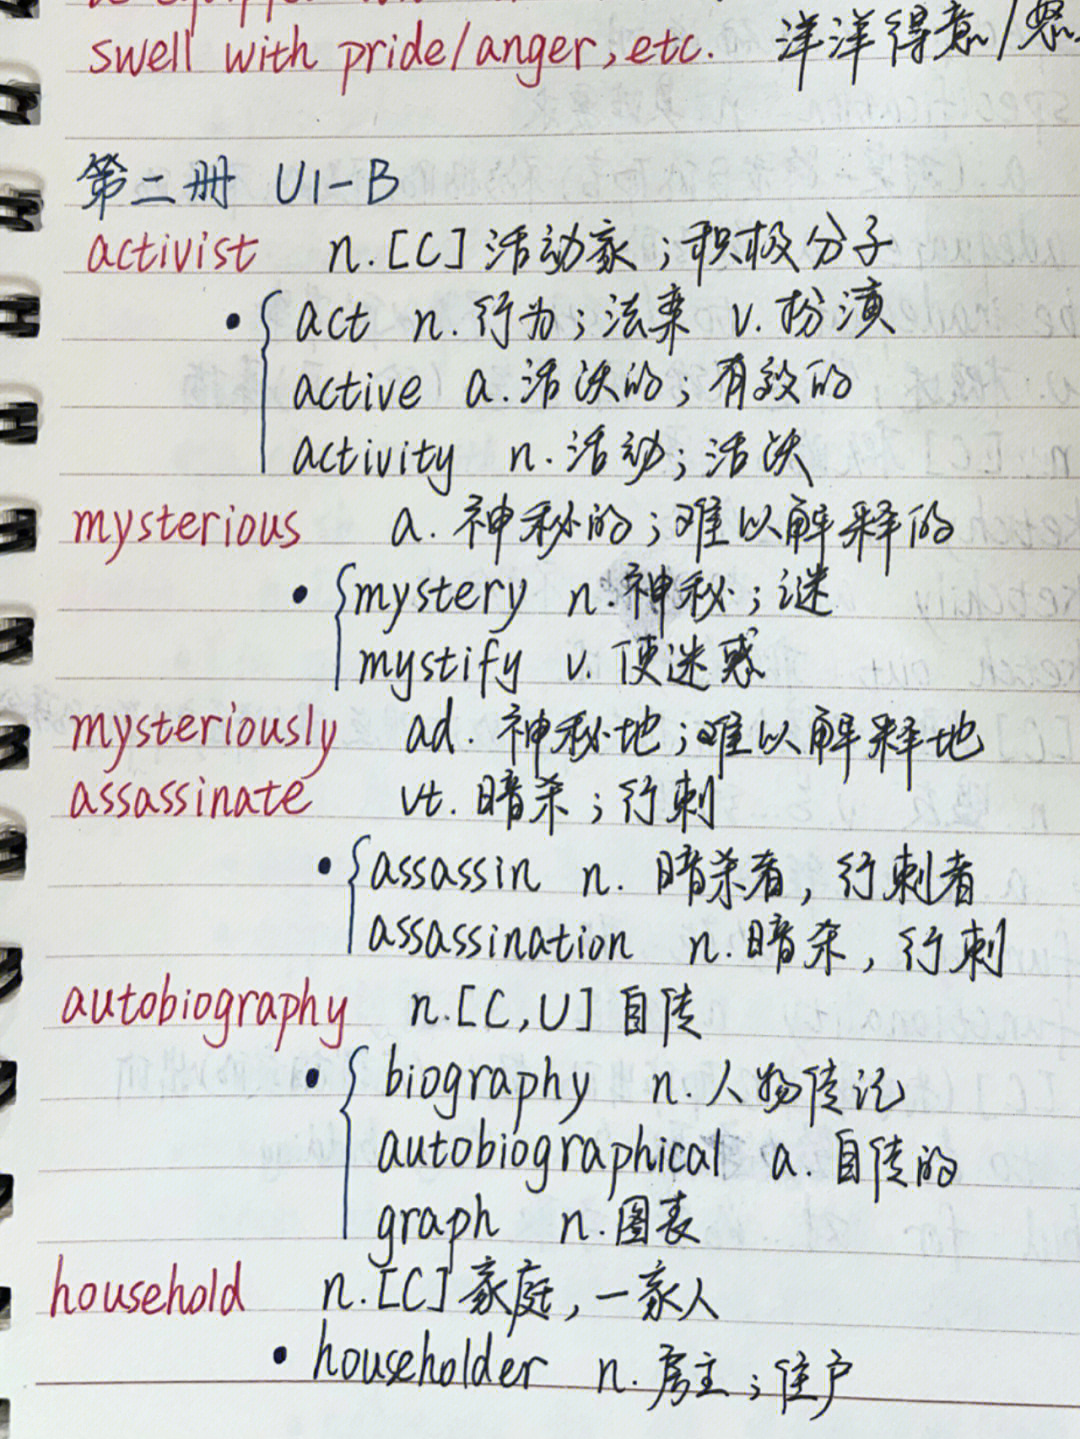 swell with pride/anger, etc. 洋洋得意/怒
第二册 U1-B
activist n.[C] 活动家；积极分子
act n.行为；法案 v.扮演
active a.活泼的；有效的
activity n.活动；活泼
mysterious a.神秘的；难以解释的
mystery n.神秘；谜
mystify v.使迷惑
mysteriously ad.神秘地；难以解释地
assassinate vt.暗杀；行刺
assassin n.暗杀者，行刺者
assassination n.暗杀，行刺
autobiography n.[C,U] 自传
biography n.人物传记
autobiographical a.自传的
graph n.图表
household n.[C] 家庭，一家人
householder n.房主；住户